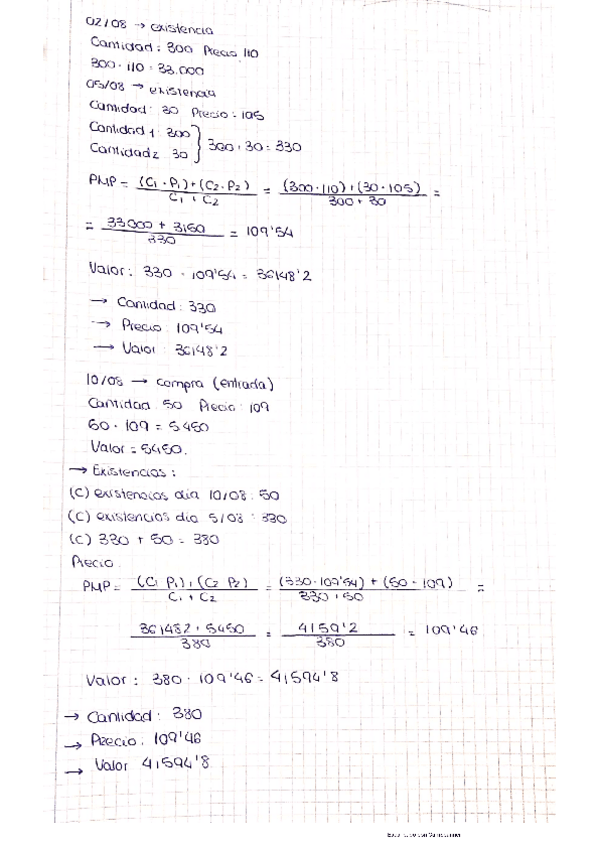 02/08 → existencia
Cantidad: 300 Precio 110
300 · 110 = 33.000
05/08 → existencia
Cantidad: 30 Precio: 105
Cantidad 1: 300
Cantidad 2 30 } 300 + 30 = 330
PMP = (C1 · P1) + (C2 · P2) / C1 + C2 = (300 · 110) + (30 · 105) / 300 + 30 =
= 33000 + 3150 / 330 = 109'54
Valor: 330 · 109'54 = 36148'2
→ Cantidad: 330
→ Precio: 109'54
→ Valor: 36148'2
10/08 → compra (entrada)
Cantidad 50 Precio: 109
50 · 109 = 5450
Valor = 5450.
→ Existencias:
(C) existencias día 10/08: 50
(C) existencias día 5/08: 330
(C) 330 + 50 = 380
Precio
PMP = (C1 P1) + (C2 P2) / C1 + C2 = (330 · 109'54) + (50 · 109) / 330 + 50 =
361482 + 5450 / 380 = 4159'2 / 380 = 109'46
Valor: 380 · 109'46 = 41594'8
→ Cantidad: 380
→ Precio: 109'46
→ Valor 41594'8